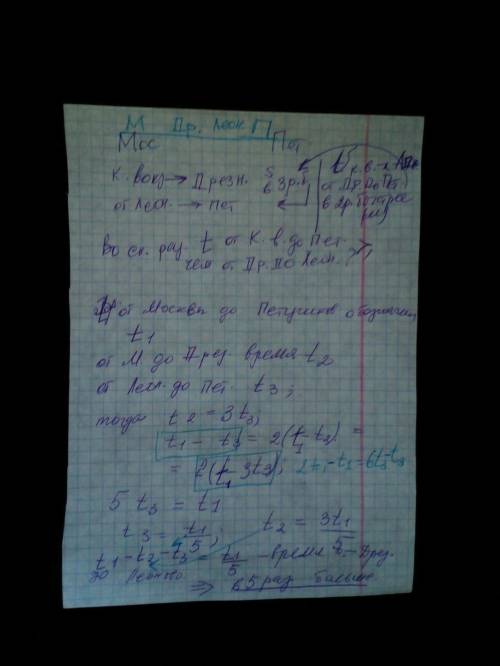 М Др. Леон П
Мос Пет
К. вокз → Дрезн. в 3 р.
от Леон. → Пет
от Др. до Пет.
в 2 р.
Во ск. раз t от К. в. до Пет. >
чем от Др. до Леон.
от Москвы до Петушков обозначим
t1
от М до Дрез время t2
от Леон. до Пет. t3;
тогда t2 = 3t3,
t1 - t3 = 2(t1 - t2) =
= 2(t1 - 3t3), 2t1 - t1 = 6t3 - t3
5 t3 = t1
t3 = t1/5; t2 = 3t1/5
t1 - t2 - t3 = t1/5 - время Дрез.
до Леоно
⇒ в 5 раз больше